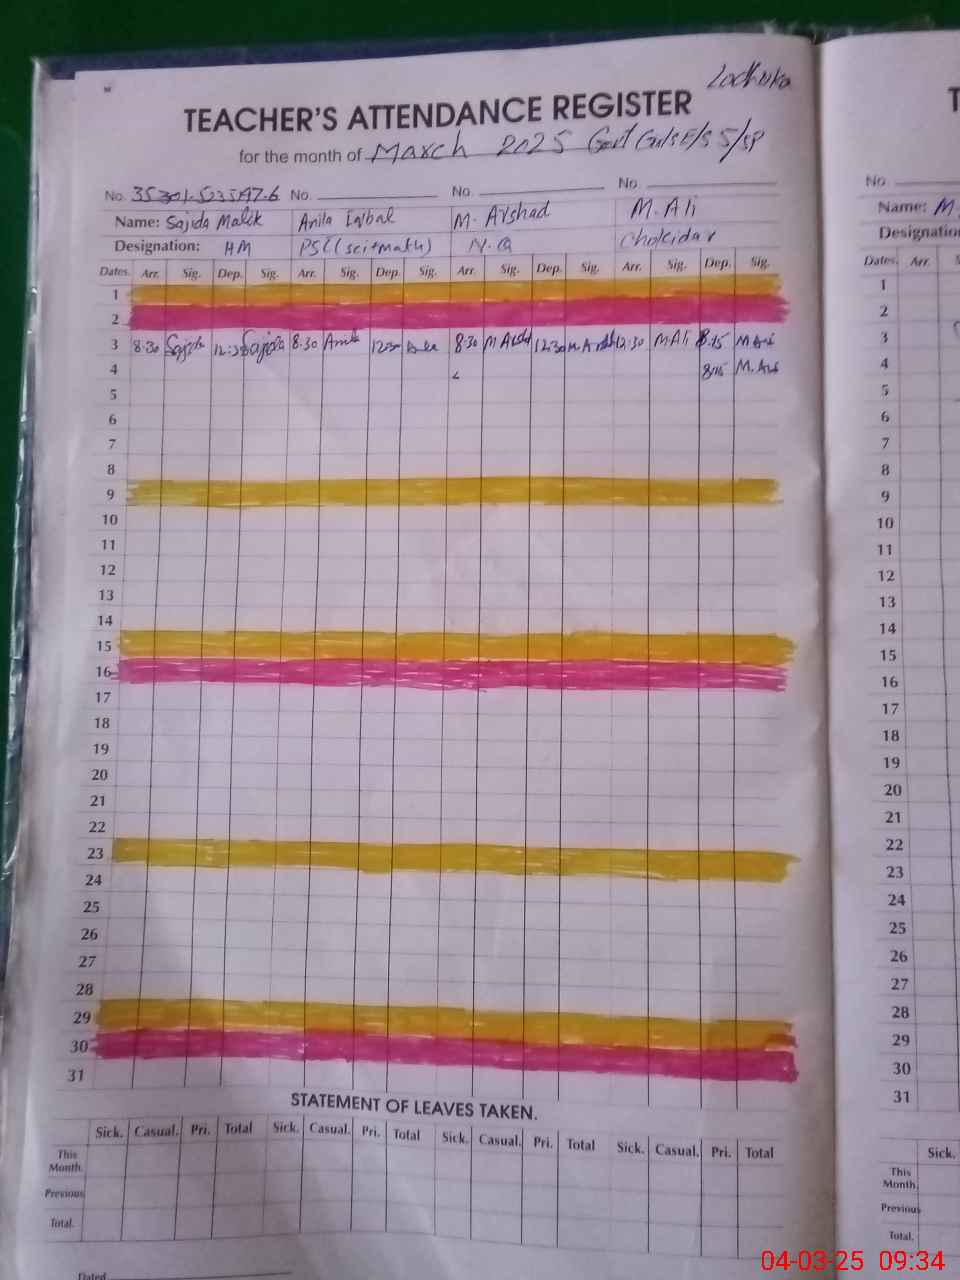 Ladhuka
TEACHER'S ATTENDANCE REGISTER
for the month of March 2025 Govt Girls E/S 5/SP
No. No. No. No.
Name: Sajida Malik Anila Iqbal M. Arshad M. Ali
Designation: HM PST (sci+math) N.Q Chokidar
Dates. Arr. Sig. Dep. Sig. Arr. Sig. Dep. Sig. Arr. Sig. Dep. Sig. Arr. Sig. Dep. Sig.
1
2
3 8:30 Sajida 12:30 Sajida 8:30 Anila 12:30 8:30 M Arshad 12:30 M. Arshad 12:30 M.Ali 8:15 M Ali
4 8:15 M. Ali
5
6
7
8
9
10
11
12
13
14
15
16
17
18
19
20
21
22
23
24
25
26
27
28
29
30
31
STATEMENT OF LEAVES TAKEN.
Sick. Casual. Pri. Total Sick. Casual. Pri. Total Sick. Casual. Pri. Total Sick. Casual. Pri. Total
This Month.
Previous
Total.
Dated
T
No.
Name: M
Designation
Dates. Arr. S
1
2
3
4
5
6
7
8
9
10
11
12
13
14
15
16
17
18
19
20
21
22
23
24
25
26
27
28
29
30
31
Sick.
This Month.
Previous
Total.
04-03-25 09:34